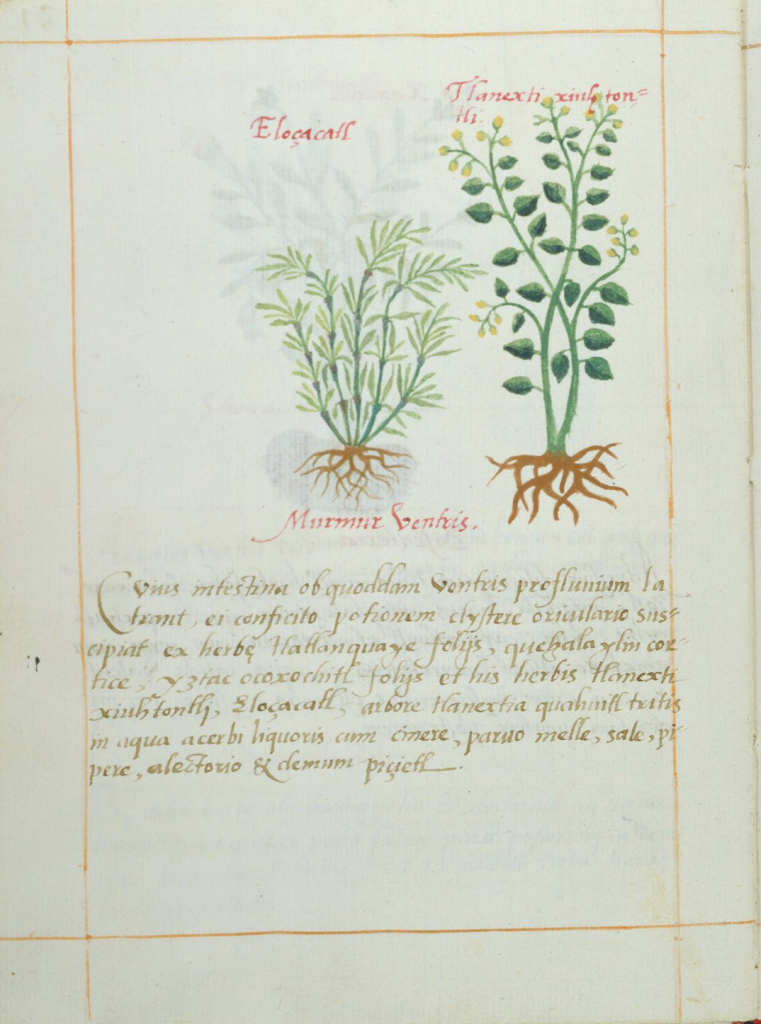 Eloçacatl
Tlanexti xiuhton=
tli.
Murmur Ventris.
Cuius intestina ob quoddam Ventris profluuium la
trant, ei conficito potionem clystere oriculario sus=
cipiat ex herbę tlatlanquaye folijs, quetzalaylin cor=
tice, yztac ocoxochitl folijs et his herbis tlanexti
xiuhtontli, Eloçacatl, arbore tlanextia quahuitl tritis
in aqua acerbi liquoris cum cinere, paruo melle, sale, pi
pere, alectorio & demum piçietl.